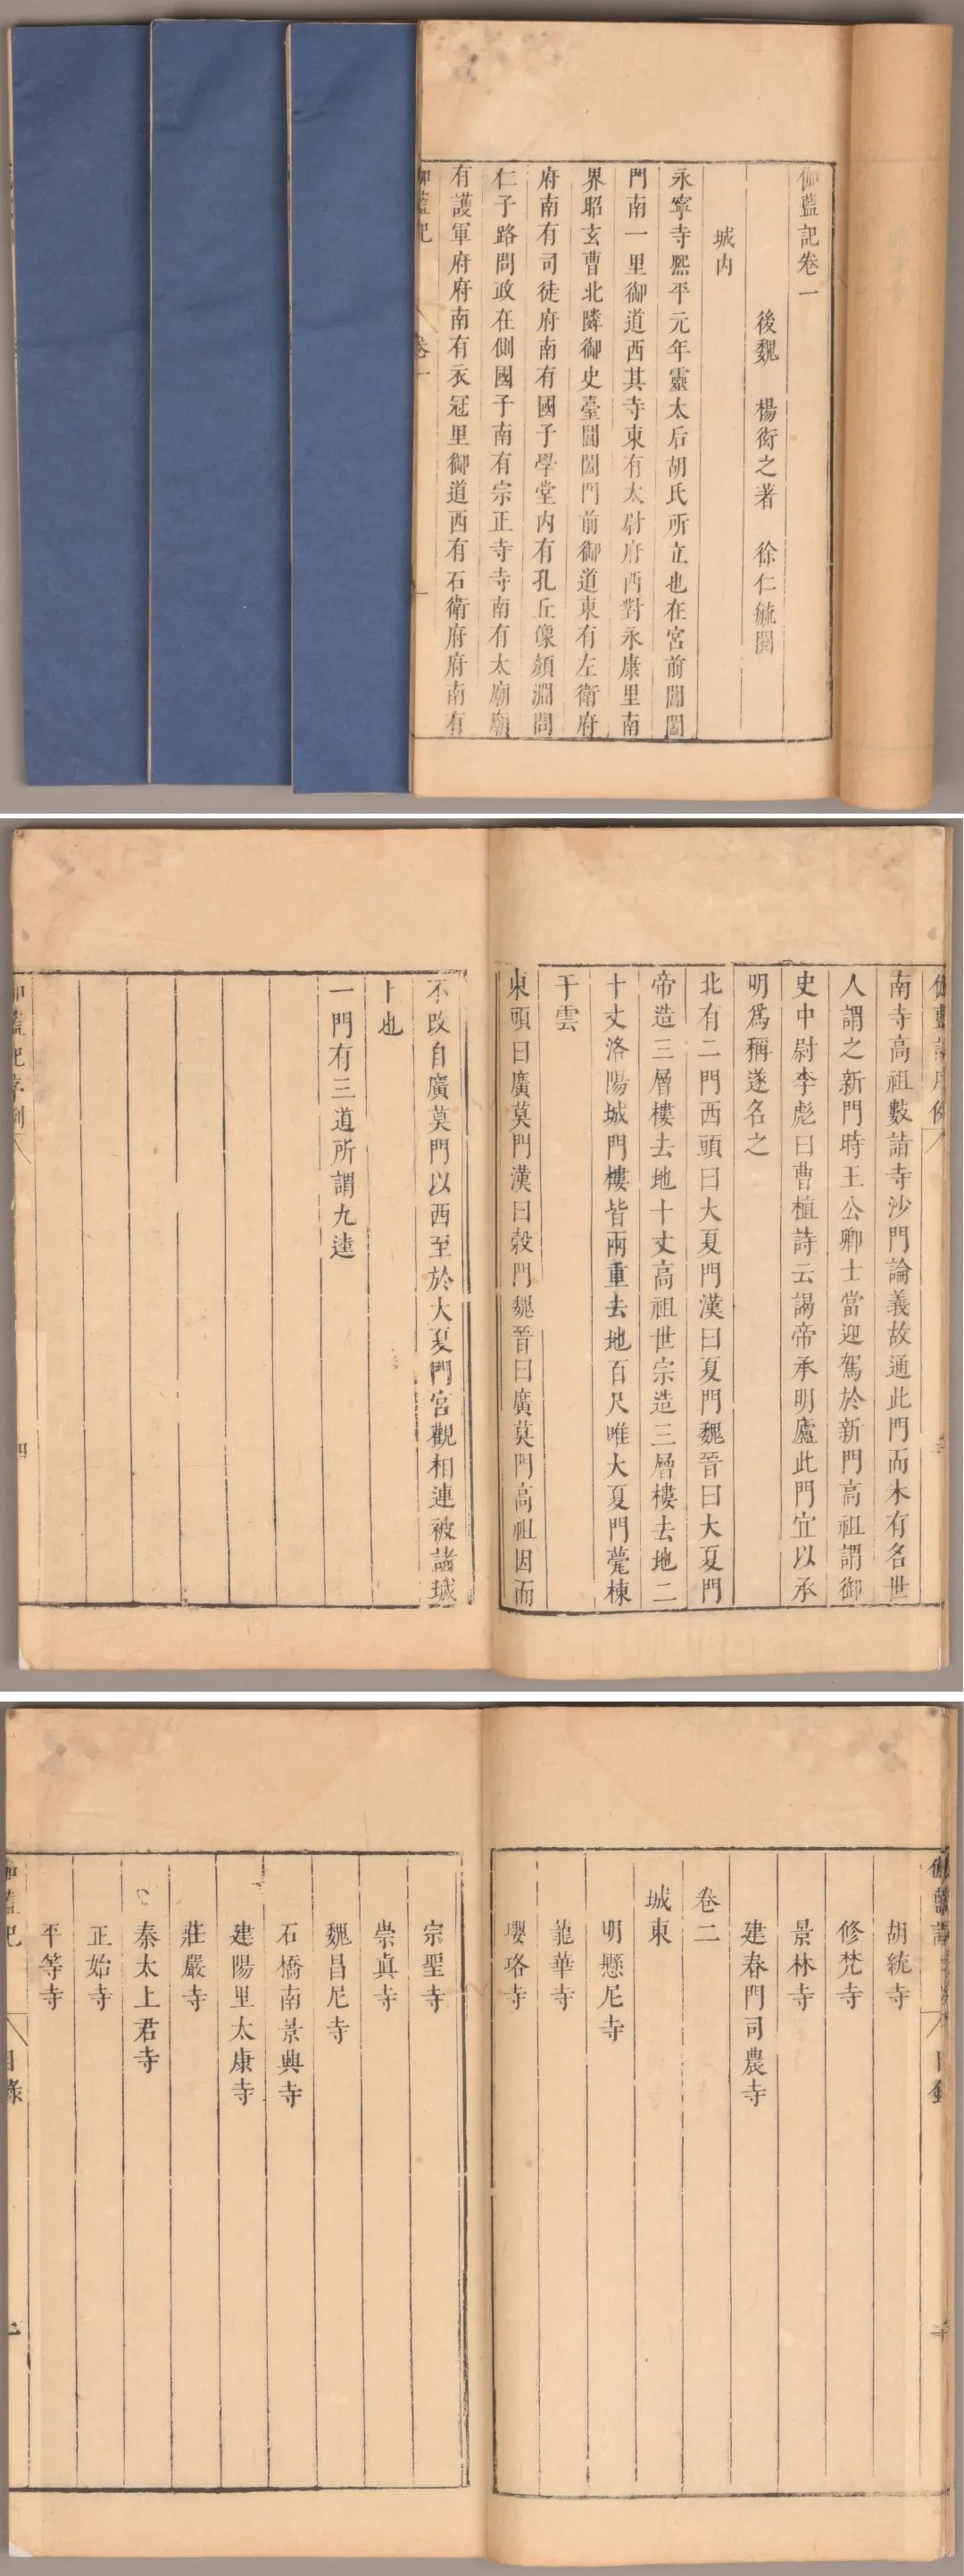 伽藍記卷一
後魏　楊衒之著　徐仁毓閱
城內
永寧寺熙平元年靈太后胡氏所立也在宮前閶闔
門南一里御道西其寺東有太尉府西對永康里南
界昭玄曹北隣御史臺閶闔門前御道東有左衛府
府南有司徒府南有國子學堂內有孔丘像顏淵問
仁子路問政在側國子南有宗正寺寺南有太廟廟
有護軍府府南有衣冠里御道西有石衛府府南有
伽藍記
卷一
伽藍記序例
南寺高祖數詣寺沙門論義故通此門而木有名世
人謂之新門時王公卿士當迎駕於新門高祖謂御
史中尉李彪曰曹植詩云謁帝承明廬此門宜以承
明爲稱遂名之
北有二門西頭曰大夏門漢曰夏門魏晉曰大夏門
帝造三層樓去地十丈高祖世宗造三層樓去地二
十丈洛陽城門樓皆兩重去地百尺唯大夏門甍棟
干雲
東頭曰廣莫門漢曰穀門魏晉曰廣莫門高祖因而
不改自廣莫門以西至於大夏門宮觀相連被諸城
上也
一門有三道所謂九逵
伽藍記序例
四
伽藍記
目錄
胡統寺
修梵寺
景林寺
建春門司農寺
卷二
城東
明懸尼寺
龍華寺
瓔珞寺
宗聖寺
崇眞寺
魏昌尼寺
石橋南景興寺
建陽里太康寺
莊嚴寺
秦太上君寺
正始寺
平等寺
伽藍記
目錄